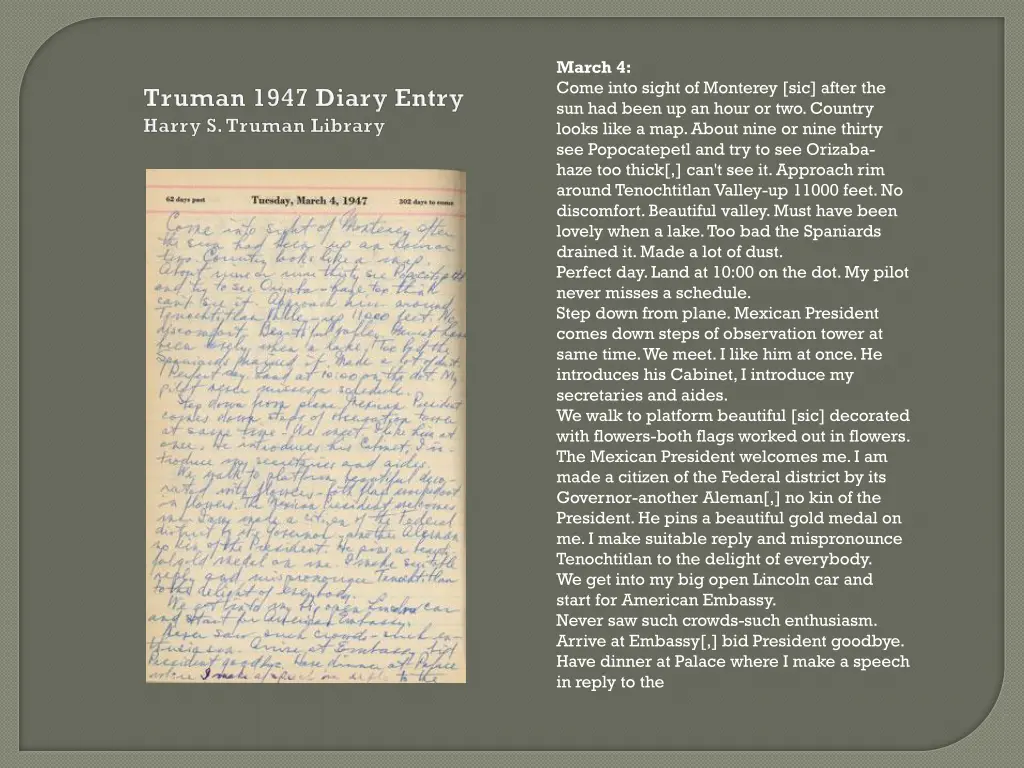 Truman 1947 Diary Entry
Harry S. Truman Library
62 days past Tuesday, March 4, 1947 302 days to come
Come into sight of Monterey after
the sun had been up an hour or
two. Country looks like a map.
About nine or nine thirty see Popocatepetl
and try to see Orizaba-haze too thick
can't see it. Approach rim around
Tenochtitlan Valley-up 11000 feet. No
discomfort. Beautiful valley. Must have
been lovely when a lake. Too bad the
Spaniards drained it. Made a lot of dust.
Perfect day. Land at 10:00 on the dot. My
pilot never misses a schedule.
Step down from plane. Mexican President
comes down steps of observation tower
at same time. We meet. I like him at
once. He introduces his Cabinet, I in-
troduce my secretaries and aides.
We walk to platform beautiful deco-
rated with flowers-both flags worked out
in flowers. The Mexican President welcomes
me. I am made a citizen of the Federal
district by its Governor-another Aleman
no kin of the President. He pins a beauti-
ful gold medal on me. I make suitable
reply and mispronounce Tenochtitlan
to the delight of everybody.
We get into my big open Lincoln car
and start for American Embassy.
Never saw such crowds-such en-
thusiasm. Arrive at Embassy bid
President goodbye. Have dinner at Palace
where I make a speech in reply to the
March 4:
Come into sight of Monterey [sic] after the
sun had been up an hour or two. Country
looks like a map. About nine or nine thirty
see Popocatepetl and try to see Orizaba-
haze too thick[,] can't see it. Approach rim
around Tenochtitlan Valley-up 11000 feet. No
discomfort. Beautiful valley. Must have been
lovely when a lake. Too bad the Spaniards
drained it. Made a lot of dust.
Perfect day. Land at 10:00 on the dot. My pilot
never misses a schedule.
Step down from plane. Mexican President
comes down steps of observation tower at
same time. We meet. I like him at once. He
introduces his Cabinet, I introduce my
secretaries and aides.
We walk to platform beautiful [sic] decorated
with flowers-both flags worked out in flowers.
The Mexican President welcomes me. I am
made a citizen of the Federal district by its
Governor-another Aleman[,] no kin of the
President. He pins a beautiful gold medal on
me. I make suitable reply and mispronounce
Tenochtitlan to the delight of everybody.
We get into my big open Lincoln car and
start for American Embassy.
Never saw such crowds-such enthusiasm.
Arrive at Embassy[,] bid President goodbye.
Have dinner at Palace where I make a speech
in reply to the